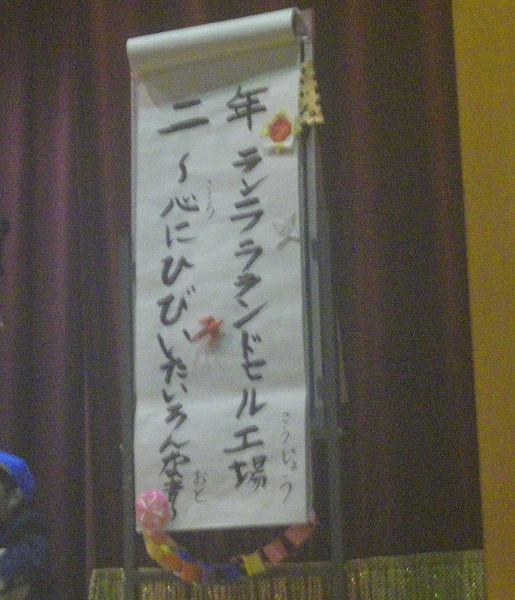 二年
ランラララランドセル工場
こうじょう
～心にひびいたいろんな音～
こころ
おと